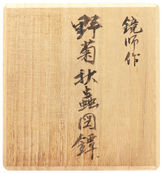 鏡師作
野菊秋蟲図鐔